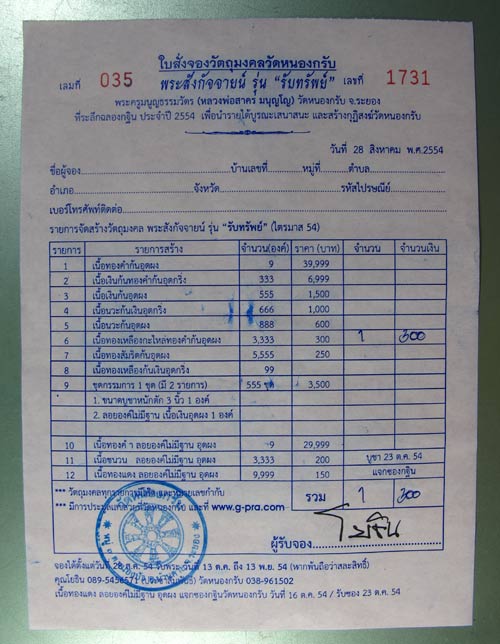 ใบสั่งจองวัตถุมงคลวัดหนองกรับ
เล่มที่ 035 พระสังกัจจายน์ รุ่น "รับทรัพย์" เลขที่ 1731
พระครูมนูญธรรมวัตร (หลวงพ่อสาคร มนุญโญ) วัดหนองกรับ จ.ระยอง
ที่ระลึกฉลองกฐิน ประจำปี 2554 เพื่อนำรายได้บูรณะเสนาสนะ และสร้างกุฏิสงฆ์วัดหนองกรับ
วันที่ 28 สิงหาคม พ.ศ.2554
ชื่อผู้จอง บ้านเลขที่ หมู่ที่ ตำบล
อำเภอ จังหวัด รหัสไปรษณีย์
เบอร์โทรศัพท์ติดต่อ
รายการจัดสร้างวัตถุมงคล พระสังกัจจายน์ รุ่น "รับทรัพย์" (ไตรมาส 54)
รายการ รายการสร้าง จำนวน(องค์) ราคา (บาท) จำนวน จำนวนเงิน
1 เนื้อทองคำก้นอุดผง 9 39,999
2 เนื้อเงินก้นทองคำก้นอุดกริ่ง 333 6,999
3 เนื้อเงินก้นอุดผง 555 1,500
4 เนื้อนวะก้นเงินอุดกริ่ง 666 1,000
5 เนื้อนวะก้นอุดผง 888 600
6 เนื้อทองเหลืองกะไหล่ทองคำก้นอุดผง 3,333 300 1 300
7 เนื้อทองสัมริดก้นอุดผง 5,555 250
8 เนื้อทองเหลืองก้นเงินอุดกริ่ง 99
9 ชุดกรรมการ 1 ชุด (มี 2 รายการ) 555 ชุด 3,500
1. ขนาดบูชาหน้าตัก 3 นิ้ว 1 องค์
2. ลอยองค์ไม่มีฐาน เนื้อเงินอุดผง 1 องค์
10 เนื้อทองคำ ลอยองค์ไม่มีฐาน อุดผง 9 29,999
11 เนื้อชนวน ลอยองค์ไม่มีฐาน อุดผง 3,333 200 บูชา 23 ต.ค. 54
12 เนื้อทองแดง ลอยองค์ไม่มีฐาน อุดผง 9,999 150 แจกของกฐิน
*** วัตถุมงคลทุกรายการมีโค้ด และหมายเลขกำกับ รวม 1 300
*** มีการประมูล วัดหนองกรับ และที่ www.g-pra.com
ผู้รับจอง โยธิน
จองได้ตั้งแต่วันที่ 28 ส.ค. 54 รับพระ วันที่ 13 ต.ค. ถึง 13 พ.ย. 54 (หากพ้นถือว่าสละสิทธิ์)
คุณโยธิน วัดหนองกรับ 038-961502
เนื้อทองแดง ลอยองค์ไม่มีฐาน อุดผง แจกของกฐินวัดหนองกรับ วันที่ 16 ต.ค. 54 / รับของ 23 ต.ค. 54